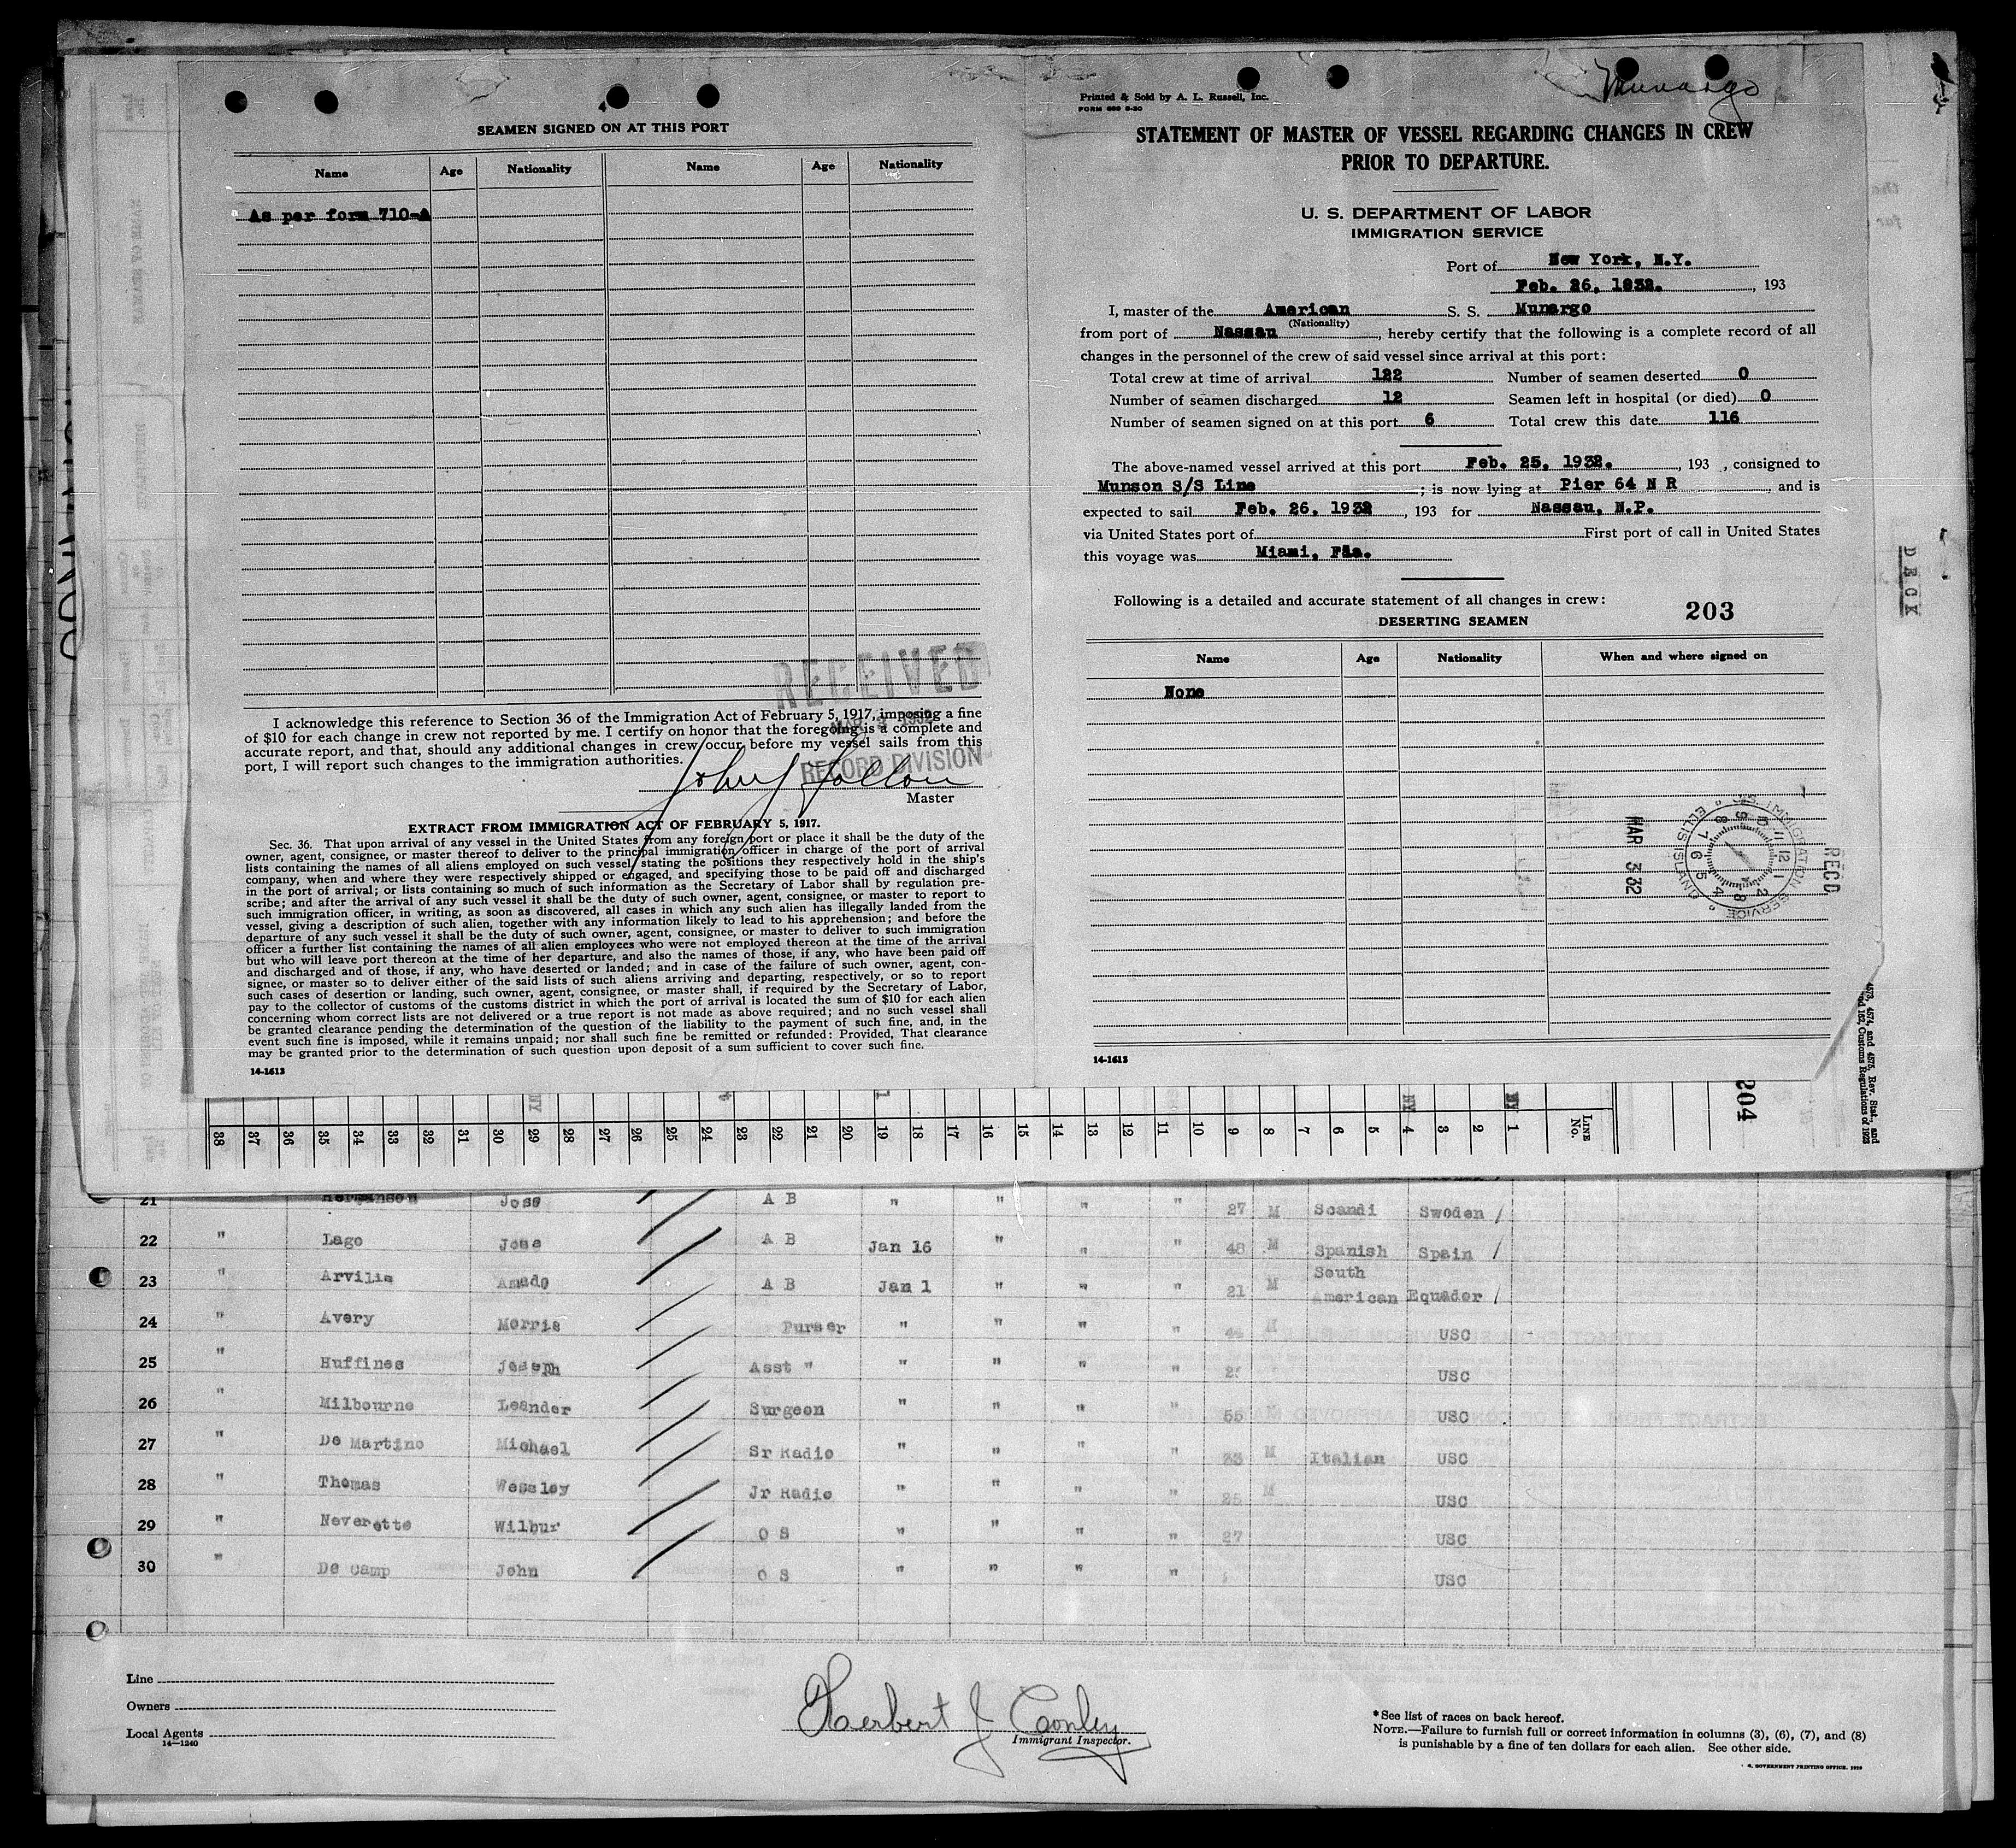 4
SEAMEN SIGNED ON AT THIS PORT
Name Age Nationality Name Age Nationality
As per form 710-A
RECEIVED
MAR 3 1932
RECORD DIVISION
I acknowledge this reference to Section 36 of the Immigration Act of February 5, 1917, imposing a fine
of $10 for each change in crew not reported by me. I certify on honor that the foregoing is a complete and
accurate report, and that, should any additional changes in crew occur before my vessel sails from this
port, I will report such changes to the immigration authorities.
John J Fallon
Master
EXTRACT FROM IMMIGRATION ACT OF FEBRUARY 5, 1917.
Sec. 36. That upon arrival of any vessel in the United States from any foreign port or place it shall be the duty of the
owner, agent, consignee, or master thereof to deliver to the principal immigration officer in charge of the port of arrival
lists containing the names of all aliens employed on such vessel, stating the positions they respectively hold in the ship's
company, when and where they were respectively shipped or engaged, and specifying those to be paid off and discharged
in the port of arrival; or lists containing so much of such information as the Secretary of Labor shall by regulation pre-
scribe; and after the arrival of any such vessel it shall be the duty of such owner, agent, consignee, or master to report to
such immigration officer, in writing, as soon as discovered, all cases in which any such alien has illegally landed from the
vessel, giving a description of such alien, together with any information likely to lead to his apprehension; and before the
departure of any such vessel it shall be the duty of such owner, agent, consignee, or master to deliver to such immigration
officer a further list containing the names of all alien employees who were not employed thereon at the time of the arrival
but who will leave port thereon at the time of her departure, and also the names of those, if any, who have been paid off
and discharged and of those, if any, who have deserted or landed; and in case of the failure of such owner, agent, con-
signee, or master so to deliver either of the said lists of such aliens arriving and departing, respectively, or so to report
such cases of desertion or landing, such owner, agent, consignee, or master shall, if required by the Secretary of Labor,
pay to the collector of customs of the customs district in which the port of arrival is located the sum of $10 for each alien
concerning whom correct lists are not delivered or a true report is not made as above required; and no such vessel shall
be granted clearance pending the determination of the question of the liability to the payment of such fine, and, in the
event such fine is imposed, while it remains unpaid; nor shall such fine be remitted or refunded: Provided, That clearance
may be granted prior to the determination of such question upon deposit of a sum sufficient to cover such fine.
14-1613
Munargo
Printed & Sold by A. L. Russell, Inc.
FORM 689 8-30
STATEMENT OF MASTER OF VESSEL REGARDING CHANGES IN CREW
PRIOR TO DEPARTURE.
U. S. DEPARTMENT OF LABOR
IMMIGRATION SERVICE
Port of New York, N.Y.
Feb. 26, 1932. , 193
I, master of the American S. S. Munargo
(Nationality)
from port of Nassau , hereby certify that the following is a complete record of all
changes in the personnel of the crew of said vessel since arrival at this port:
Total crew at time of arrival 122 Number of seamen deserted 0
Number of seamen discharged 12 Seamen left in hospital (or died) 0
Number of seamen signed on at this port 6 Total crew this date 116
The above-named vessel arrived at this port Feb. 25, 1932. , 193 , consigned to
Munson S/S Line ; is now lying at Pier 64 N R , and is
expected to sail Feb. 26, 1932 , 193 for Nassau, N.P.
via United States port of First port of call in United States
this voyage was Miami, Fla.
Following is a detailed and accurate statement of all changes in crew:
203
DESERTING SEAMEN
Name Age Nationality When and where signed on
None
RECD
U.S. IMMIGRATION SERVICE ELLIS ISLAND
MAR 3 32
14-1613
DECK
4573, 4574, and 4575, Rev. Stat., and
162, Customs Regulations of 1923
204
38 37 36 35 34 33 32 31 30 29 28 27 26 25 24 23 22 21 20 19 18 17 16 15 14 13 12 11 10 9 8 7 6 5 4 3 2 1 LINE No.
NY NY NY
21 Hermanson Jose A B " " " " 27 M Scandi Sweden /
22 " Lago Jose A B Jan 16 " " " 48 M Spanish Spain /
23 " Arvilia Amado A B Jan 1 " " " 21 M South American Equador /
24 " Avery Morris Purser " " " " 44 M USC
25 " Huffines Joseph Asst " " " " " USC
26 " Milbourne Leander Surgeon " " " " 55 M USC
27 " De Martino Michael Sr Radio " " " " 33 M Italian USC
28 " Thomas Wessley Jr Radio " " " " 25 M USC
29 " Neverette Wilbur O S " " " " 27 USC
30 " De Camp John O S " " " " USC
Line
Owners
Local Agents
14—1240
Herbert J Conley
Immigrant Inspector.
*See list of races on back hereof.
NOTE.—Failure to furnish full or correct information in columns (3), (6), (7), and (8)
is punishable by a fine of ten dollars for each alien. See other side.
GOVERNMENT PRINTING OFFICE: 1929